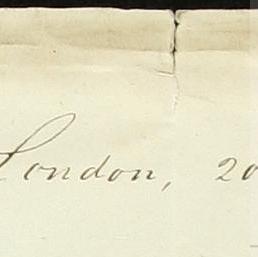 London, 20